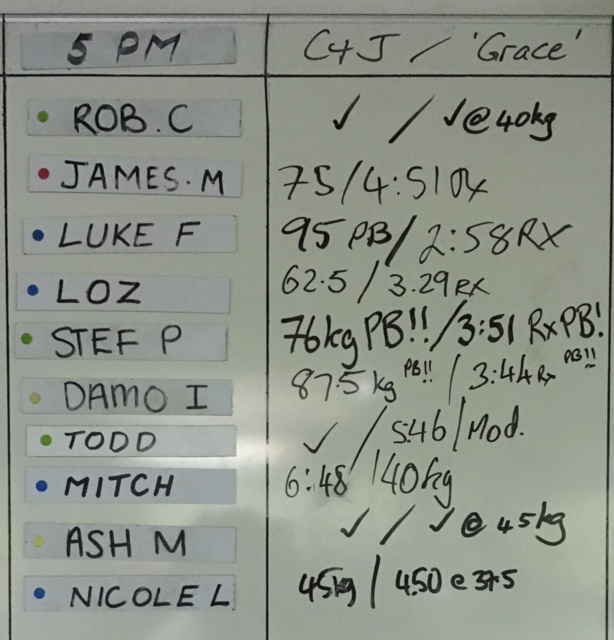 5 PM C+J / 'Grace'
ROB.C ✓ / ✓@40kg
JAMES.M 75/4:51 Rx
LUKE F 95 PB/2:58 RX
LOZ 62.5/3.29 RX
STEF P 76kg PB!!/3:51 Rx PB!
DAMO I 87.5kg PB!!/3:44 Rx PB!!
TODD ✓ / 5:46/Mod.
MITCH 6:48 /40kg
ASH M ✓ / ✓ @ 45kg
NICOLE L 45kg / 4.50 @ 37.5